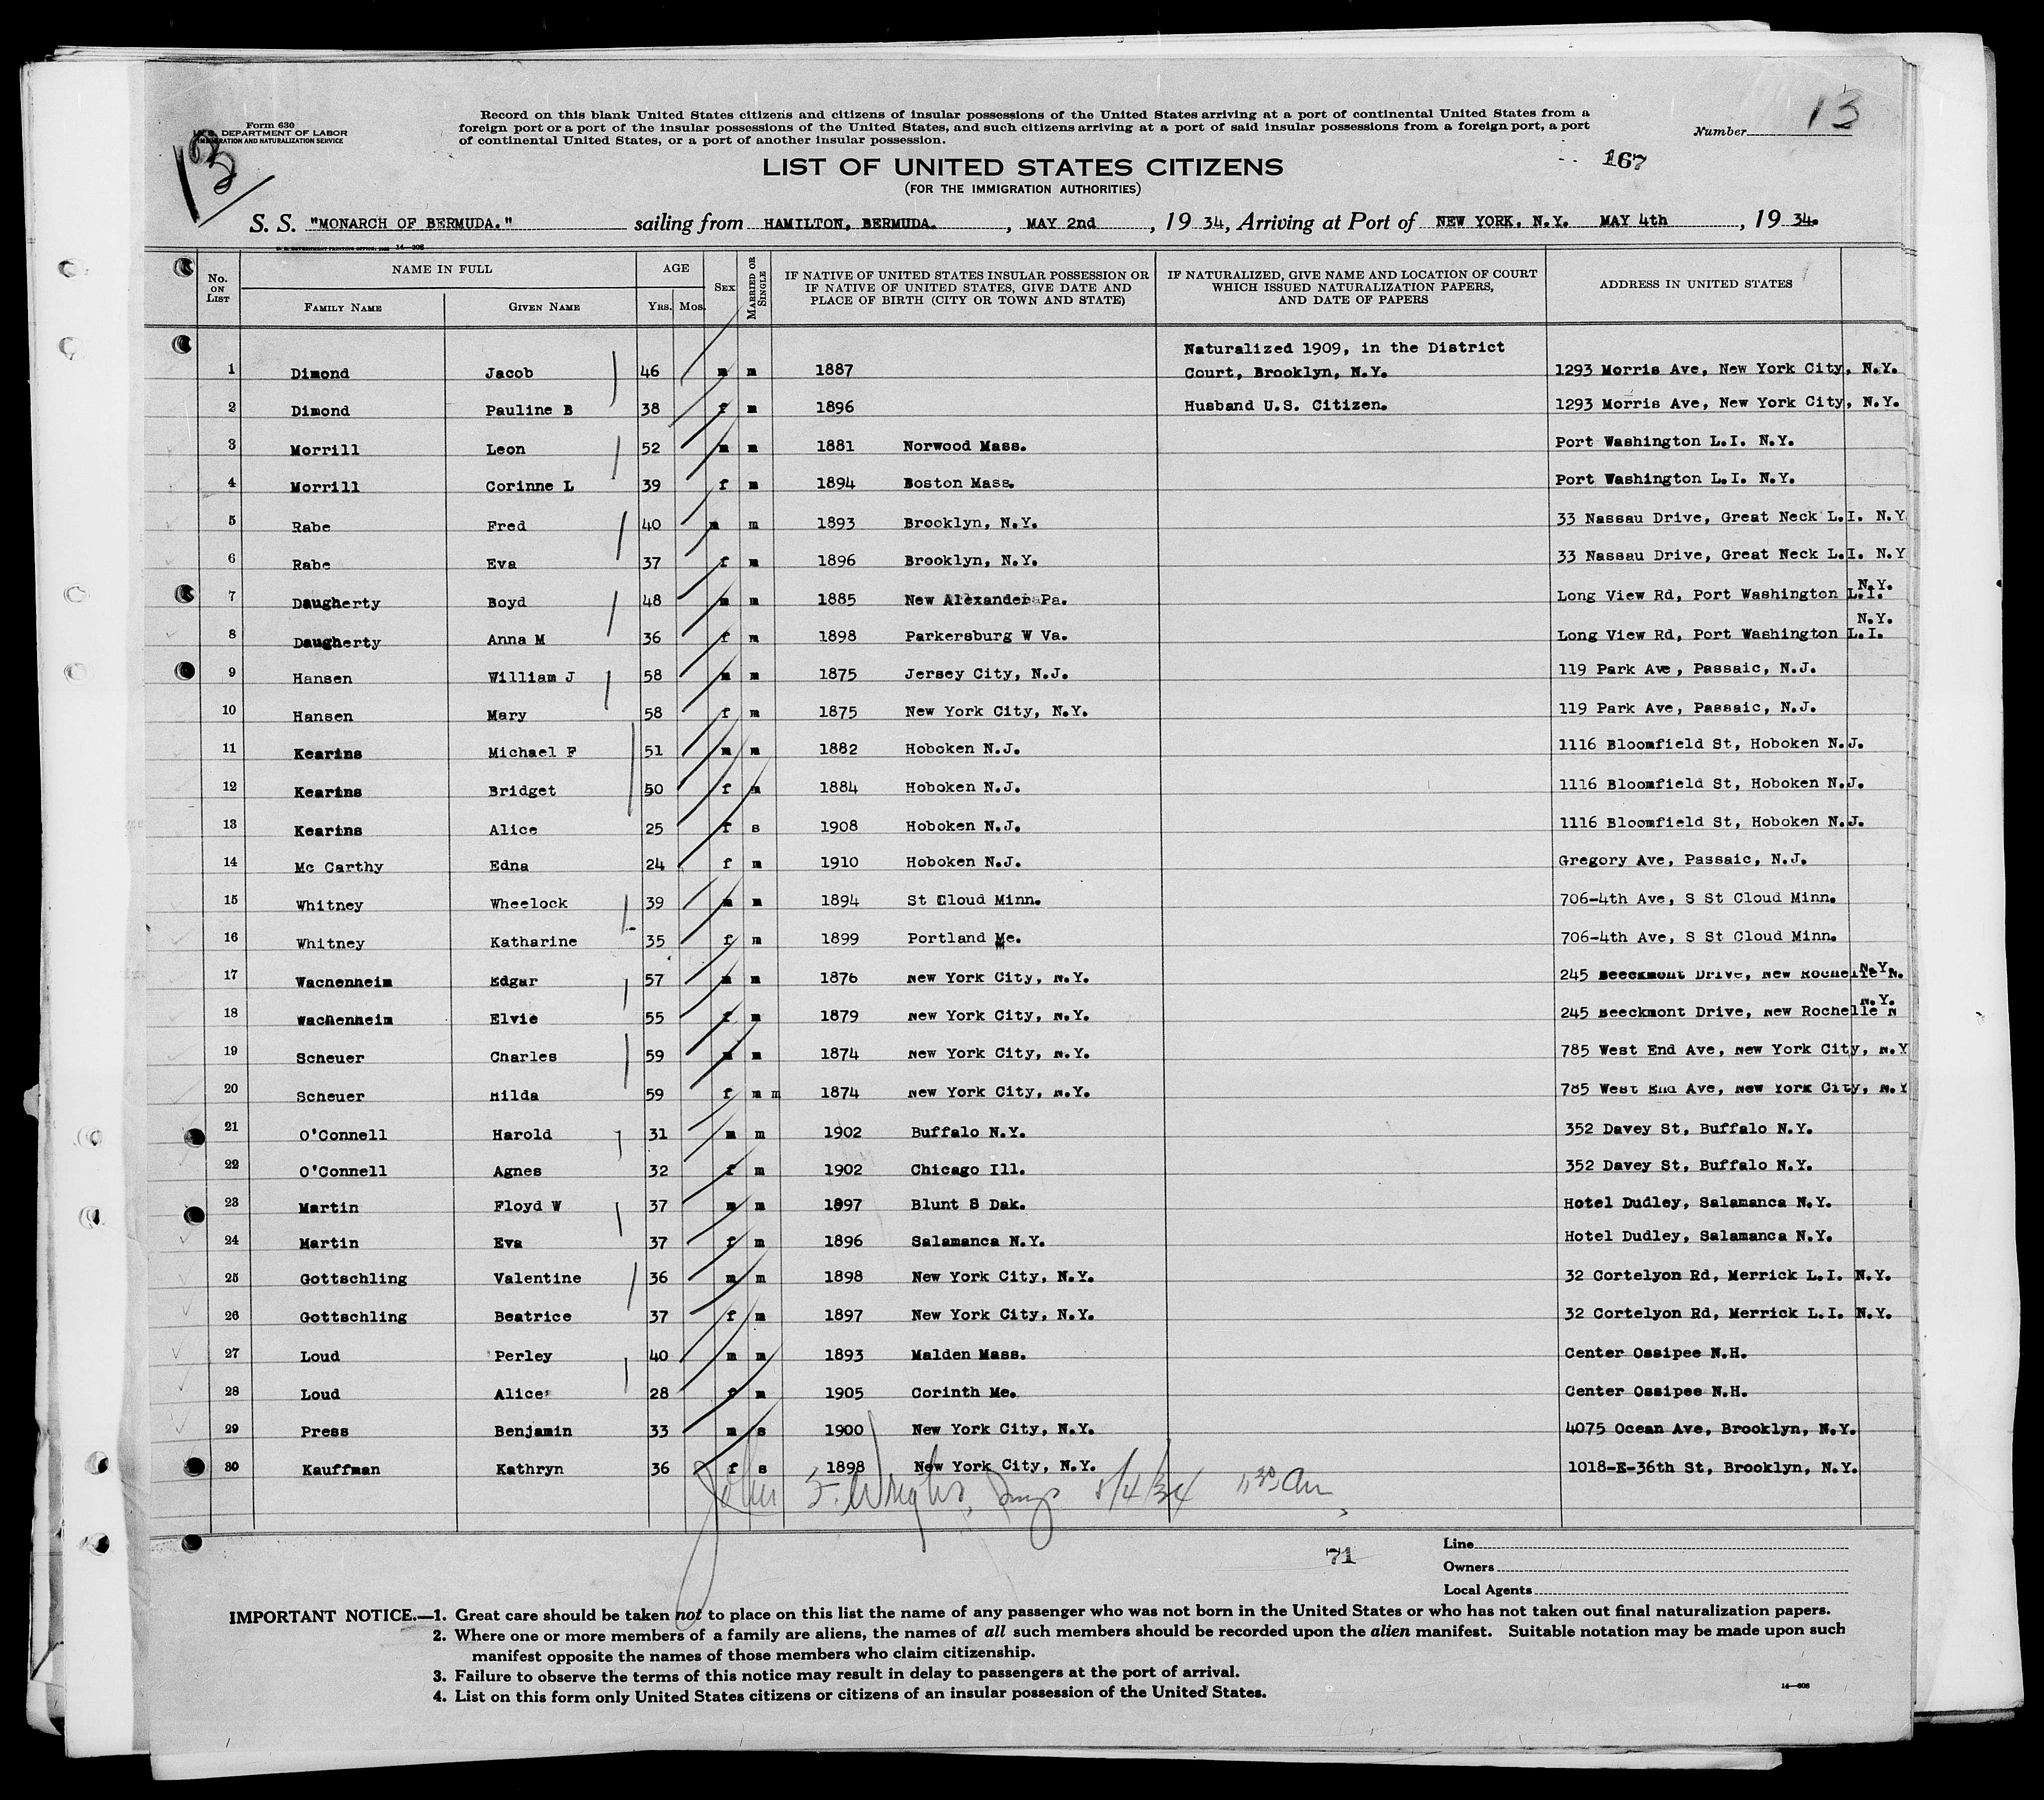 Form 630
U. S. DEPARTMENT OF LABOR
IMMIGRATION AND NATURALIZATION SERVICE
13
Record on this blank United States citizens and citizens of insular possessions of the United States arriving at a port of continental United States from a
foreign port or a port of the insular possessions of the United States, and such citizens arriving at a port of said insular possessions from a foreign port, a port
of continental United States, or a port of another insular possession.
Number 13
167
LIST OF UNITED STATES CITIZENS
(FOR THE IMMIGRATION AUTHORITIES)
S. S. "MONARCH OF BERMUDA." sailing from HAMILTON, BERMUDA. , MAY 2nd , 19 34, Arriving at Port of NEW YORK, N.Y. MAY 4th , 19 34.
U. S. GOVERNMENT PRINTING OFFICE 14—608
No. ON LIST NAME IN FULL AGE SEX MARRIED OR SINGLE IF NATIVE OF UNITED STATES INSULAR POSSESSION OR IF NATIVE OF UNITED STATES, GIVE DATE AND PLACE OF BIRTH (CITY OR TOWN AND STATE) IF NATURALIZED, GIVE NAME AND LOCATION OF COURT WHICH ISSUED NATURALIZATION PAPERS, AND DATE OF PAPERS ADDRESS IN UNITED STATES
FAMILY NAME GIVEN NAME YRS. MOS.
Naturalized 1909, in the District
1 Dimond Jacob 46 m m 1887 Court, Brooklyn, N.Y. 1293 Morris Ave, New York City, N.Y.
2 Dimond Pauline B 38 f m 1896 Husband U.S. Citizen. 1293 Morris Ave, New York City, N.Y.
3 Morrill Leon 52 m m 1881 Norwood Mass. Port Washington L.I. N.Y.
4 Morrill Corinne L 39 f m 1894 Boston Mass. Port Washington L.I. N.Y.
5 Rabe Fred 40 m m 1893 Brooklyn, N.Y. 33 Nassau Drive, Great Neck L.I. N.Y
6 Rabe Eva 37 f m 1896 Brooklyn, N.Y. 33 Nassau Drive, Great Neck L.I. N.Y
7 Daugherty Boyd 48 m m 1885 New Alexander Pa. Long View Rd, Port Washington L.I. N.Y.
8 Daugherty Anna M 36 f m 1898 Parkersburg W Va. Long View Rd, Port Washington L.I. N.Y.
9 Hansen William J 58 m m 1875 Jersey City, N.J. 119 Park Ave, Passaic, N.J.
10 Hansen Mary 58 f m 1875 New York City, N.Y. 119 Park Ave, Passaic, N.J.
11 Kearins Michael F 51 m m 1882 Hoboken N.J. 1116 Bloomfield St, Hoboken N.J.
12 Kearins Bridget 50 f m 1884 Hoboken N.J. 1116 Bloomfield St, Hoboken N.J.
13 Kearins Alice 25 f s 1908 Hoboken N.J. 1116 Bloomfield St, Hoboken N.J.
14 Mc Carthy Edna 24 f m 1910 Hoboken N.J. Gregory Ave, Passaic, N.J.
15 Whitney Wheelock 39 m m 1894 St Cloud Minn. 706-4th Ave, S St Cloud Minn.
16 Whitney Katharine 35 f m 1899 Portland Me. 706-4th Ave, S St Cloud Minn.
17 Wachenheim Edgar 57 m m 1876 New York City, N.Y. 245 Beeckmont Drive, New Rochelle N. N.Y.
18 Wachenheim Elvie 55 f m 1879 New York City, N.Y. 245 Beeckmont Drive, New Rochelle N N.Y.
19 Scheuer Charles 59 m m 1874 New York City, N.Y. 785 West End Ave, New York City, N.Y
20 Scheuer Hilda 59 f m m 1874 New York City, N.Y. 785 West End Ave, New York City, N.Y
21 O'Connell Harold 31 m m 1902 Buffalo N.Y. 352 Davey St, Buffalo N.Y.
22 O'Connell Agnes 32 f m 1902 Chicago Ill. 352 Davey St, Buffalo N.Y.
23 Martin Floyd W 37 m m 1897 Blunt S Dak. Hotel Dudley, Salamanca N.Y.
24 Martin Eva 37 f m 1896 Salamanca N.Y. Hotel Dudley, Salamanca N.Y.
25 Gottschling Valentine 36 m m 1898 New York City, N.Y. 32 Cortelyon Rd, Merrick L.I. N.Y.
26 Gottschling Beatrice 37 f m 1897 New York City, N.Y. 32 Cortelyon Rd, Merrick L.I. N.Y.
27 Loud Perley 40 m m 1893 Malden Mass. Center Ossipee N.H.
28 Loud Alice 28 f m 1905 Corinth Me. Center Ossipee N.H.
29 Press Benjamin 33 m s 1900 New York City, N.Y. 4075 Ocean Ave, Brooklyn, N.Y.
30 Kauffman Kathryn 36 f s 1898 New York City, N.Y. 1018-E-36th St, Brooklyn, N.Y.
John F. Wright, 5/4/34 11 30 AM
71
Line
Owners
Local Agents
IMPORTANT NOTICE.—1. Great care should be taken not to place on this list the name of any passenger who was not born in the United States or who has not taken out final naturalization papers.
2. Where one or more members of a family are aliens, the names of all such members should be recorded upon the alien manifest. Suitable notation may be made upon such
manifest opposite the names of those members who claim citizenship.
3. Failure to observe the terms of this notice may result in delay to passengers at the port of arrival.
4. List on this form only United States citizens or citizens of an insular possession of the United States.
14—608